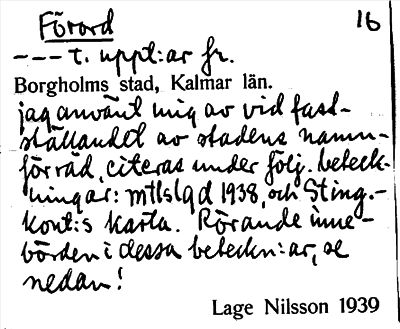 Förord 16
--- t. uppt:ar fr.
Borgholms stad, Kalmar län.
jag använt mig av vid fast-
ställandet av stadens namn-
förråd, citeras under följ. beteck-
ningar: mtlslgd 1938, och Sting.-
kont:s karta. Rörande inne-
börden i dessa beteckn:ar, se
nedan!
Lage Nilsson 1939